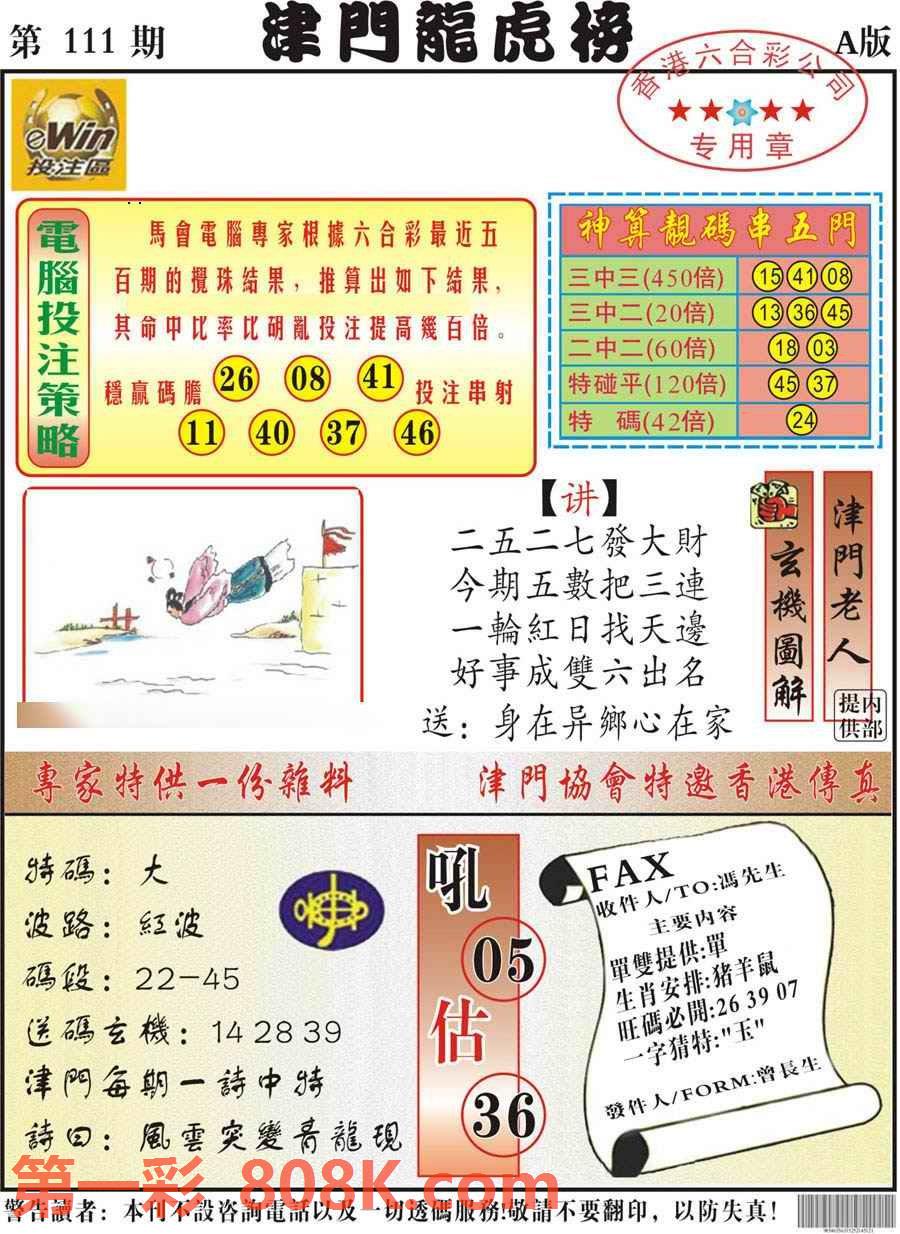 第 111 期
津門龍虎榜
A版
香港六合彩公司
专用章
eWin
投注區
電腦投注策略
馬會電腦專家根據六合彩最近五
百期的攪珠結果，推算出如下結果，
其命中比率比胡亂投注提高幾百倍。
穩贏碼膽 26 08 41 投注串射
11 40 37 46
神算靚碼串五門
三中三(450倍) 15 41 08
三中二(20倍) 13 36 45
二中二(60倍) 18 03
特碰平(120倍) 45 37
特 碼(42倍) 24
【讲】
二五二七發大財
今期五數把三連
一輪紅日找天邊
好事成雙六出名
送：身在异鄉心在家
玄機圖解
津門老人
提内
供部
專家特供一份雜料
津門協會特邀香港傳真
特碼：大
波路：紅波
碼段：22-45
送碼玄機：14 28 39
津門每期一詩中特
詩曰：風雲突變青龍現
吼
05
估
36
FAX
收件人/TO:馮先生
主要内容
單雙提供:單
生肖安排:猪羊鼠
旺碼必開:26 39 07
一字猜特:"玉"
發件人/FORM:曾長生
第一彩 808K.com
警告讀者：本刊不設咨詢電話以及一切透碼服務!敬請不要翻印，以防失真!